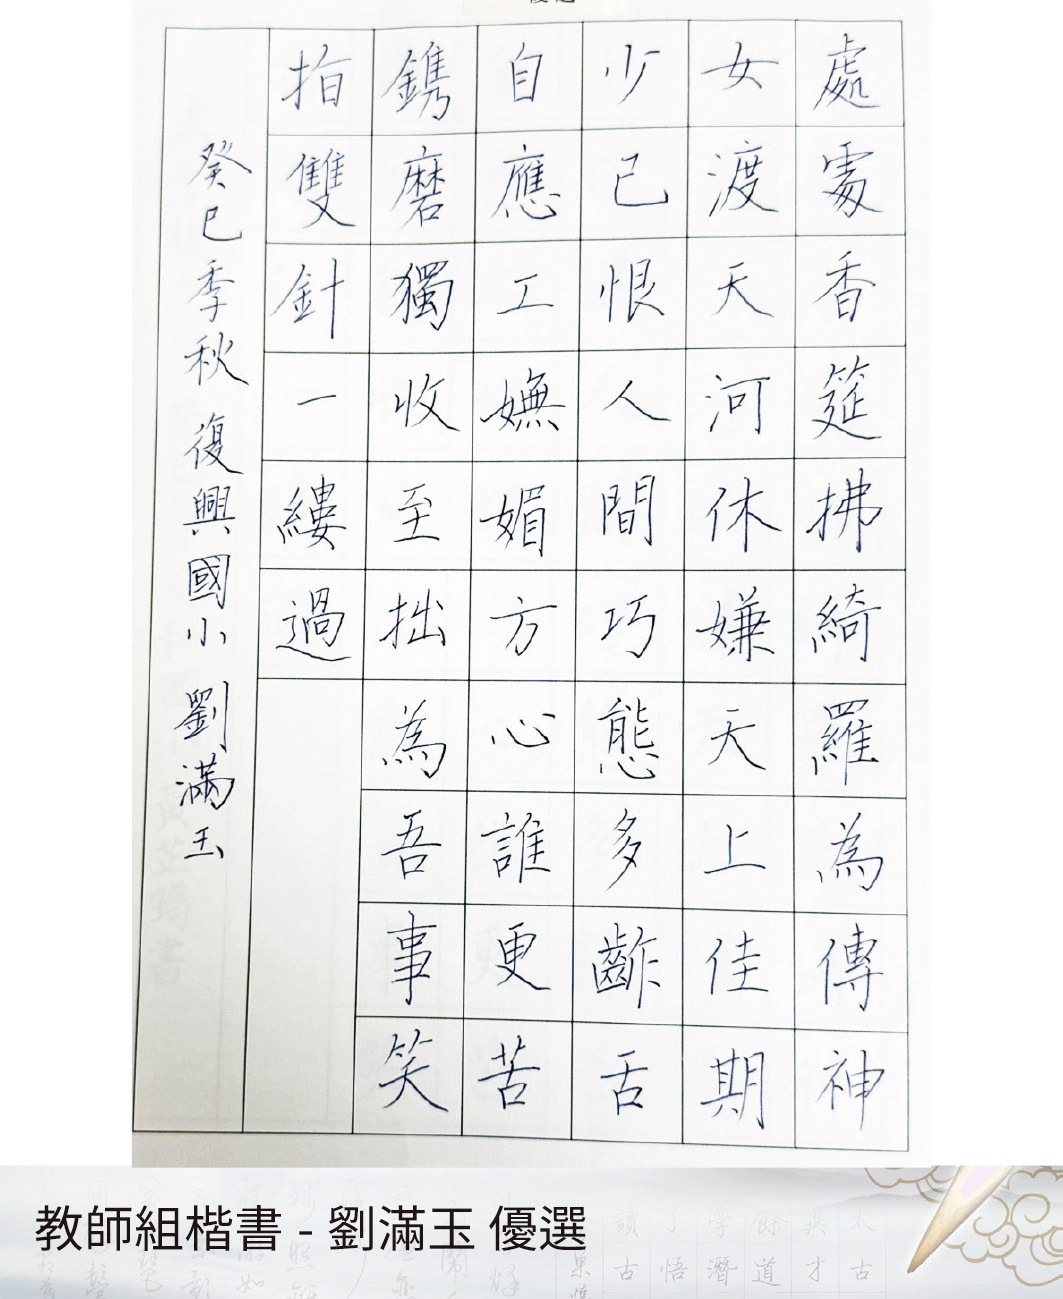 處處香筵拂綺羅為傳神
女渡天河休嫌天上佳期
少已恨人間巧態多齚舌
自應工嫵媚方心誰更苦
鐫磨獨收至拙為吾事笑
指雙針一縷過
癸巳季秋 復興國小 劉滿玉
教師組楷書 - 劉滿玉 優選